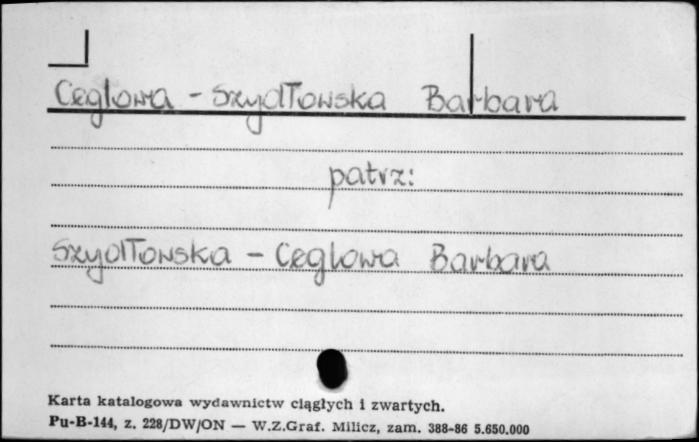 Ceglowa - Szydłowska Barbara
patrz:
Szydłowska - Ceglowa Barbara
Karta katalogowa wydawnictw ciągłych i zwartych.
Pu-B-144, z. 228/DW/ON — W.Z.Graf. Milicz, zam. 388-86 5.650.000